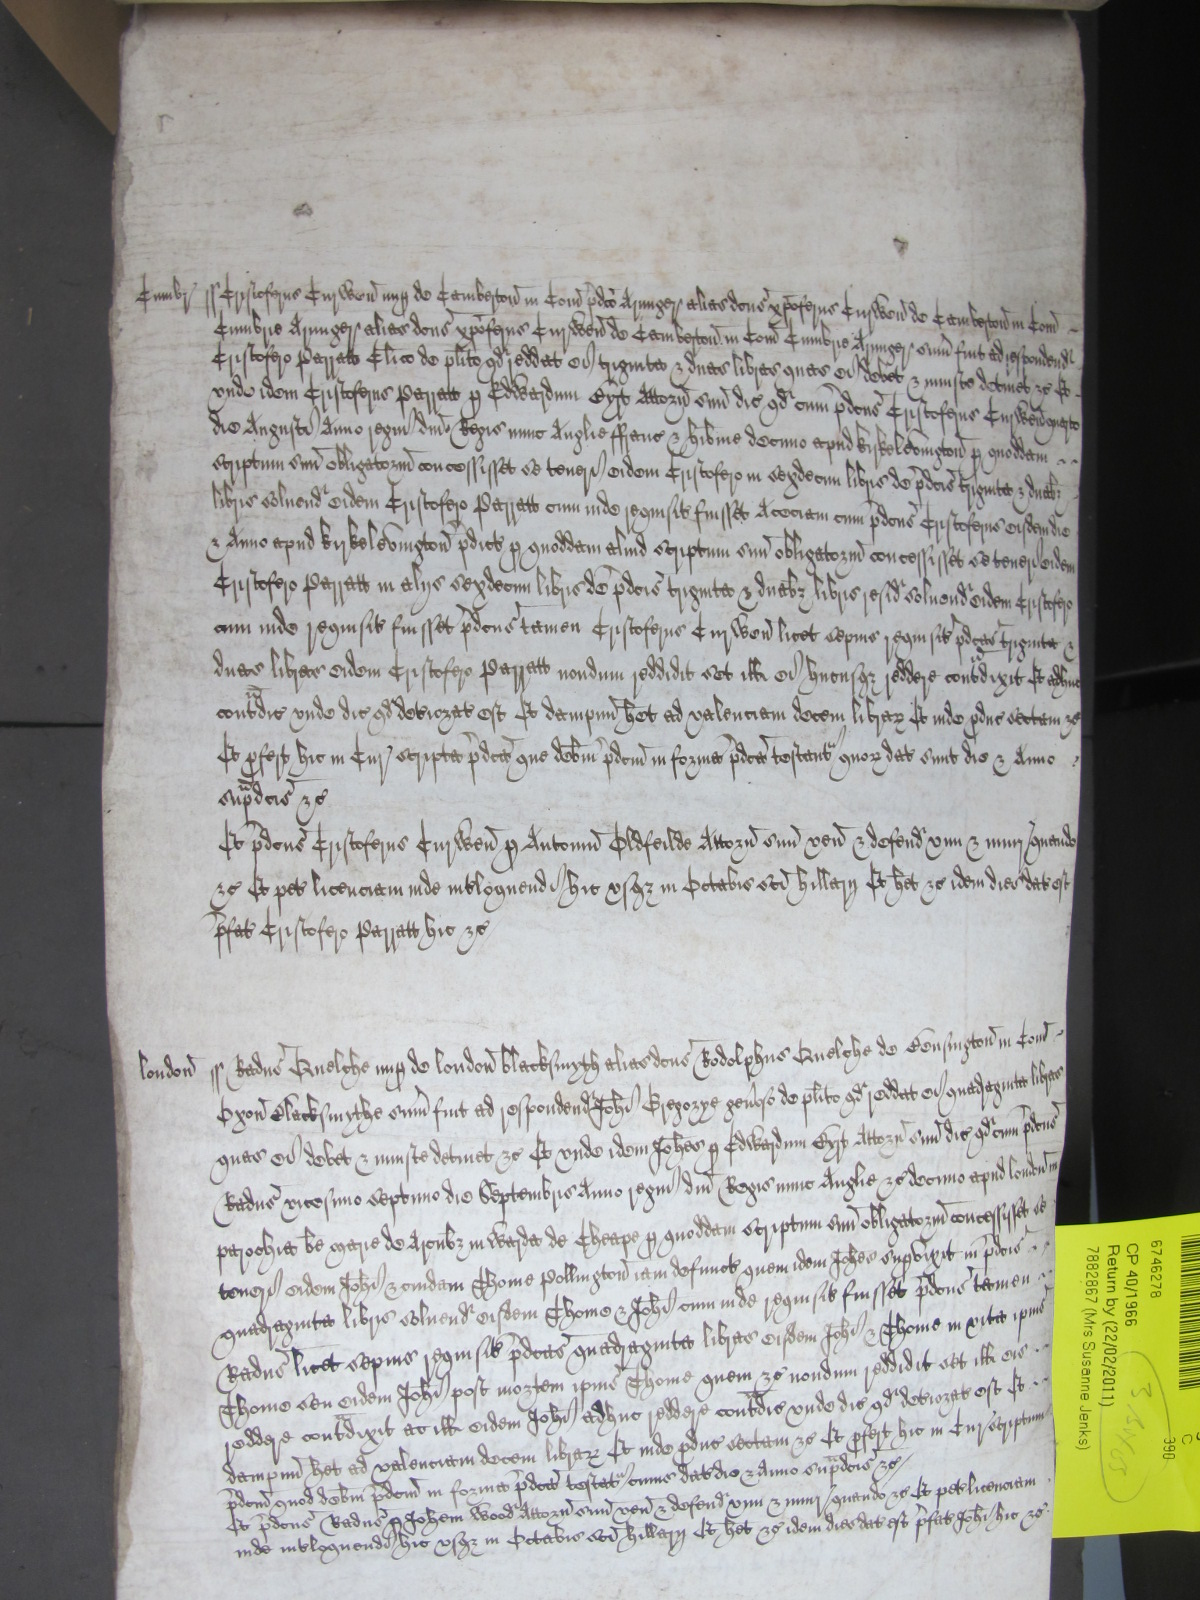 Cumbr ss Cristoferus Curwen nup de Camberton in Com pdco Armiger alias dcus xpoferus Curwen de Camberton in Com
Cumbrie Armiger alias dcus xpoferus Curwen de Camberton in Com Cumbrie Armiger sum fuit ad respondend
Cristofero Parratt Clico de plito qd reddat ei triginta & duas libras quas ei debet & iniuste detinet &c Et
unde idem Cristoferus Parratt p Edwardum Attorn suu dic qd cum pdcus Cristoferus Curwen quarto
die Augusti Anno regni dni Regis nunc Anglie ffranc & hibnie decimo apud kirkelevington p quoddam
scriptum suu obligatorium concessisset se teneri eidem Cristofero in sexdecim libris de pdcis triginta & duab3
libris solvend eidem Cristofero Parratt cum inde requisit fuisset Aceciam cum pdcus Cristoferus eisdem die
& Anno apud kirkelevington pdict p quoddam aliud scriptum suu obligatorium concessisset se teneri eidem
Cristofero Parratt in alijs sexdecim libris de pdcis triginta & duab3 libris resid solvend eidem Cristofero
cum inde requisit fuisset pdcus tamen Cristoferus Curwen licet sepius requisit pdcas triginta &
duas libras eidem Cristofero Parratt nondum reddidit set ill ei hucusq3 reddere contradixit Et adhuc
contradic unde dic qd deteriorat est Et dampnu het ad valenciam decem librar Et inde pduc sectam &c
Et pfert hic in Cur scripta pdca que debm pdcm in forma pdca testant quor dat sunt die & Anno
supradcis &c
Et pdcus Cristoferus Curwen p Antoniu Oldfeilde Attorn suu ven & defend vim & iniur quando
&c Et pet licenciam inde intloquendi hic usq3 in Octabis sci hillarij Et het &c idem dies dat est
pfat Cristofero Parratt hic &c
london ss Radus Quelche nup de london blacksmyth alias dcus Rodolphus Quelche de Bensington in Com
Oxon Blacksmythe sum fuit ad respondend Johi Gregorye genoso de plito qd reddat ei quadraginta libras
quas ei debet & iniuste detinet &c Et unde idem Johes p Edwardum Attorn suu dic qd cum pdcus
Radus vicesimo septimo die Septembris Anno regni dni Regis nunc Anglie &c decimo apud london in
parochia be marie de Arcub3 in warda de Cheape p quoddam scriptum suu obligatorium concessisset se
teneri eidem Johi & cuidam Thome Pollington iam defunct quem idem Johes supvixit in pdcis
quadraginta libris solvend eisdem Thome & Johi cum inde requisit fuisset pdcus tamen
Radus licet sepius requisit pdcas quadraginta libras eisdem Johi & Thome in vita ipius
Thome seu eidem Johi post mortem ipius Thome quem &c nondum reddidit set ill eis
reddere contradixit ac ill eidem Johi adhuc reddere contradic unde dic qd deteriorat est Et
dampnu het ad valenciam decem librar Et inde pduc sectam &c Et pfert hic in Cur scriptum
pdcm quod debm pdcm in forma pdca testat cuius dat die & Anno supradcis &c
Et pdcus Radus p Johem Wood Attorn suu ven & defend vim & iniur quando &c Et pet licenciam
inde intloquendi hic usq3 in Octabis sci hillarij Et het &c idem dies dat est pfat Johi hic &c
6746278
CP 40/1966
Return by (22/02/2011)
7882867 (Mrs Susanne Jenks)
390
C